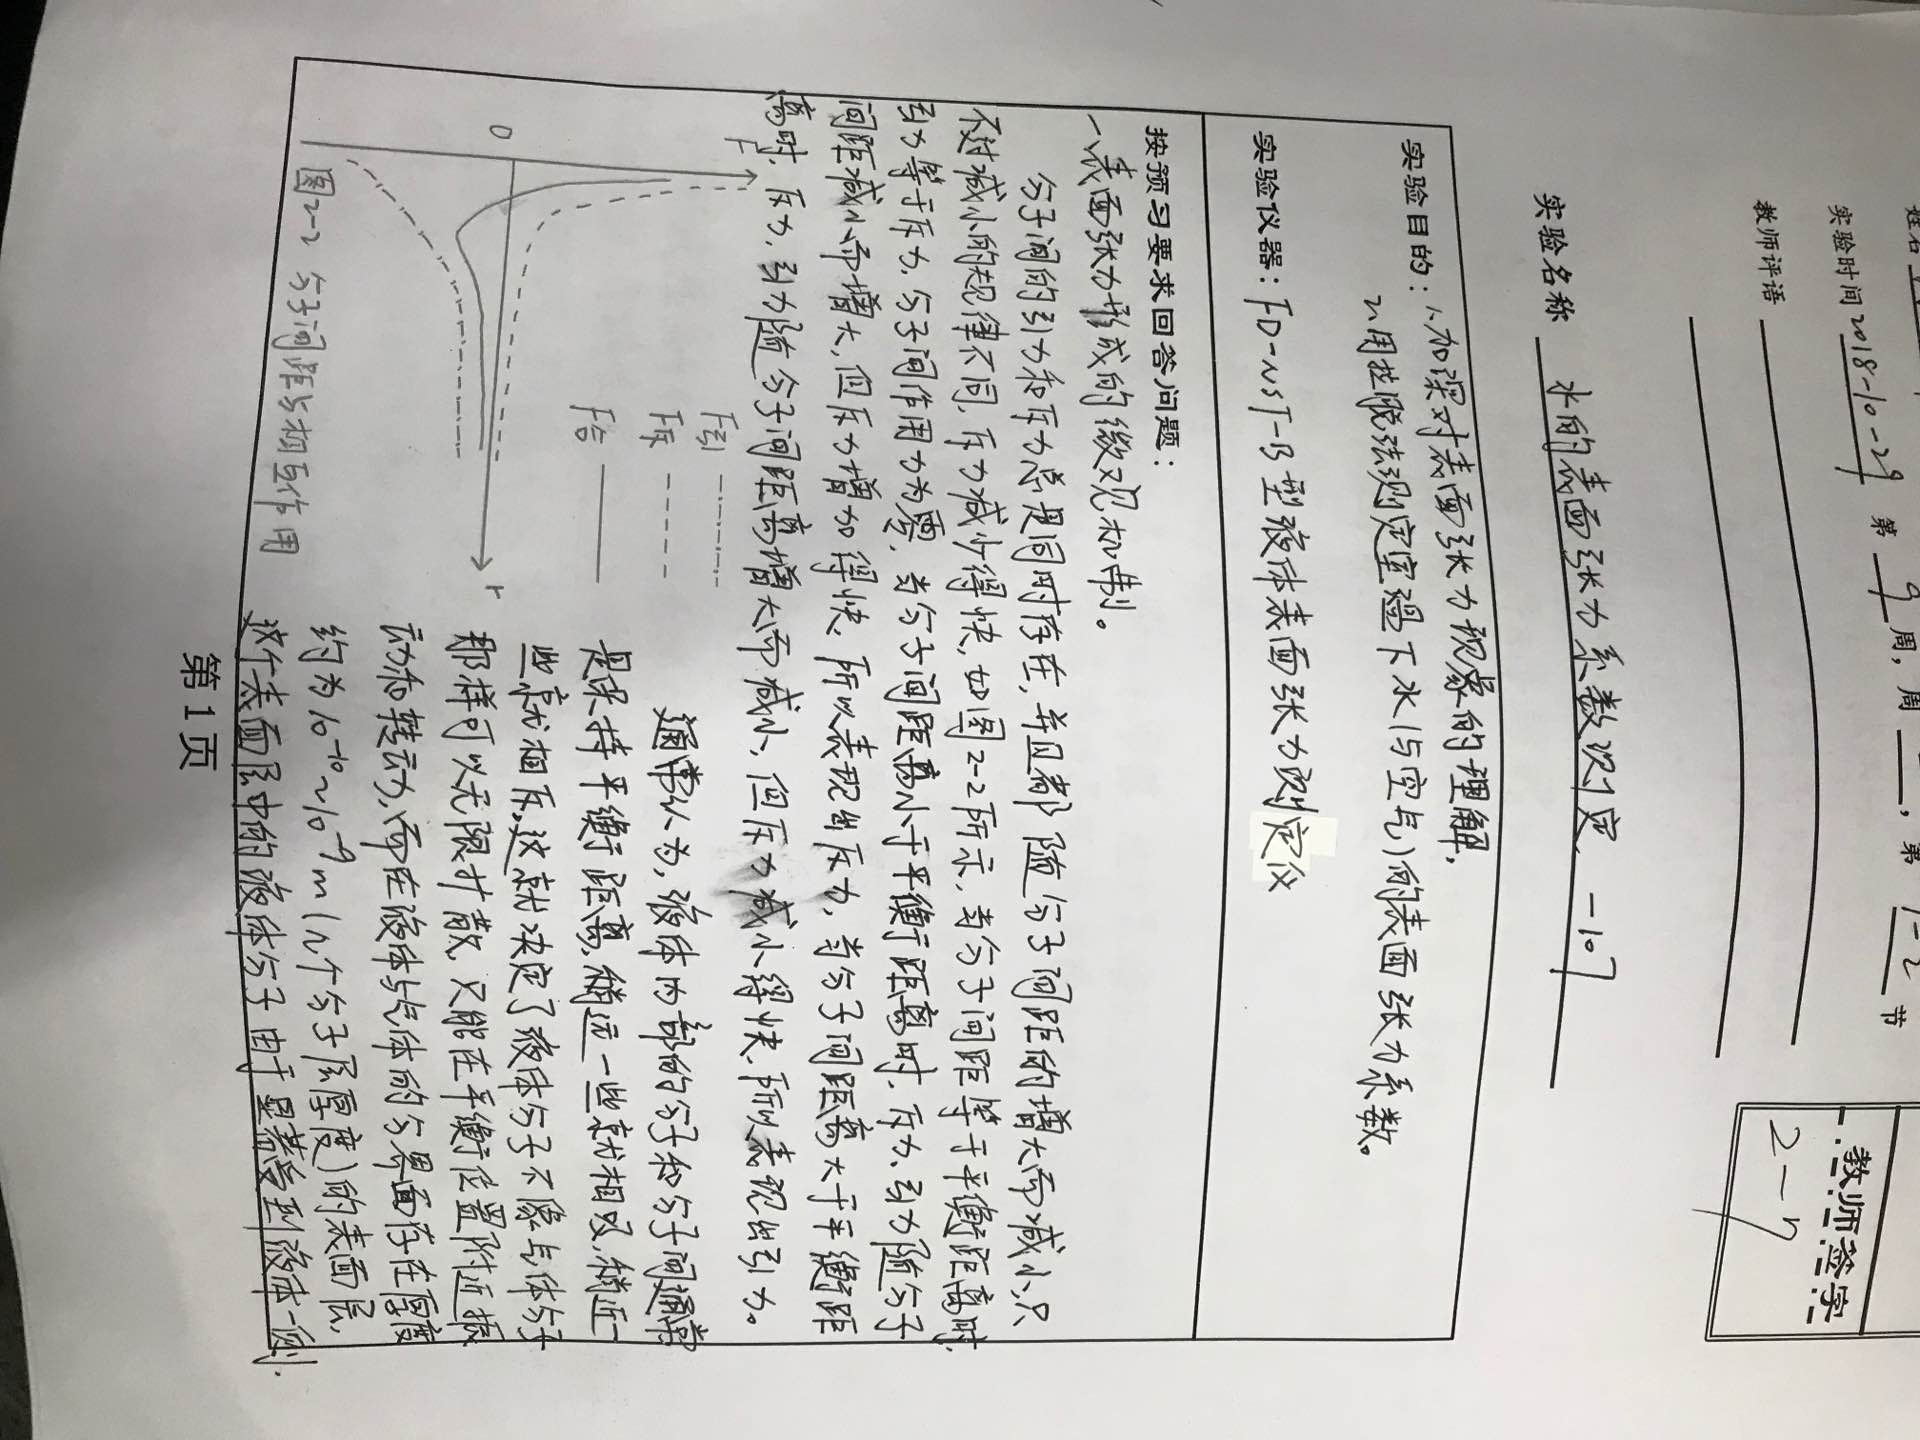 实验时间 2018-10-29 第 9 周,周 , 第 1-2 节
教师评语
教师签字
2-7
实验名称 水的表面张力系数测定 -107
实验目的:1、加深对表面张力现象的理解,
2、用拉脱法测定室温下水(与空气)的表面张力系数。
实验仪器:FD-NST-B型液体表面张力测定仪
按预习要求回答问题:
一、表面张力形成的微观机制。
分子间的引力和斥力总是同时存在,并且都随分子间距的增大而减小,只
不过减小的规律不同,斥力减小得快,如图2-2所示,当分子间距等于平衡距离时,
引力等于斥力,分子间作用力为零,当分子间距离小于平衡距离时,斥力、引力随分子
间距减小而增大,但斥力增加得快,所以表现出斥力,当分子间距离大于平衡距
离时,斥力、引力随分子间距离增大而减小,但斥力减小得快,所以表现出引力。
F
0
r
F引
F斥
F合
图2-2 分子间距与相互作用
通常认为,液体内部的分子和分子间通常
是保持平衡距离,稍远一些就相吸,稍近一
些就相斥,这就决定了液体分子不像气体分子
那样可以无限扩散,只能在平衡位置附近振
动和转动,而在液体与气体的分界面存在厚度
约为10⁻¹⁰~10⁻⁹m(几个分子层厚度)的表面层,
这个表面层中的液体分子由于显著受到液体一侧,
第1页